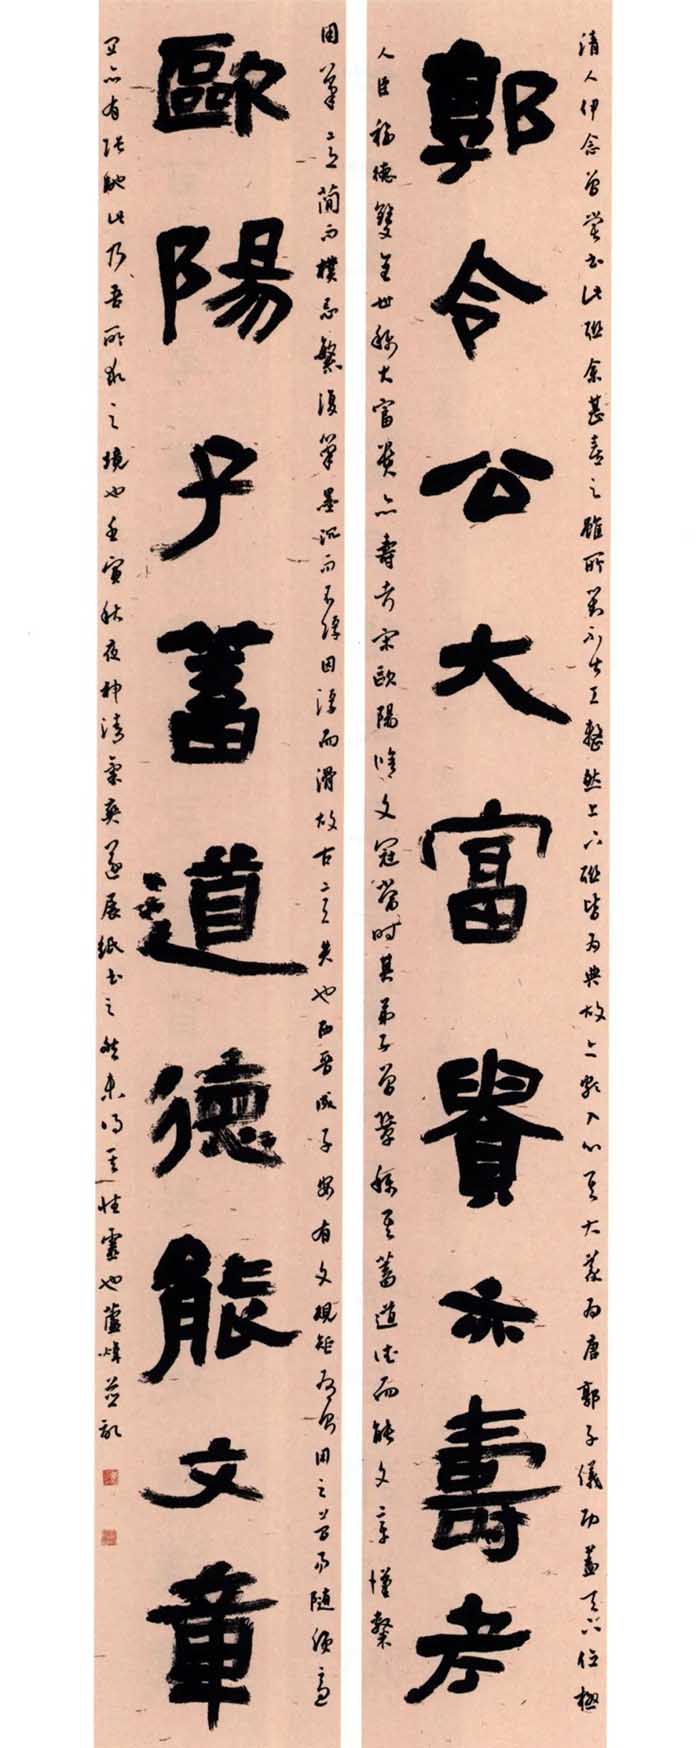 清人伊念曾嘗書此聯余甚喜之雖所對不甚工整然上下聯皆為典故上款其大義為唐郭子儀功蓋天下位極
郭令公大富貴亦壽考
人臣福德雙全世稱大富貴亦壽考宋歐陽修文冠當時其弟子曾鞏稱其蓄道德而能文章
用筆宜簡而樸忌繁複筆墨沉而不浮因浮而滑故古也西晉成子安有文規矩有則用之簡易隨便適
歐陽子蓄道德能文章
宜亦有張馳此乃吾所求之境也壬寅秋夜神清氣爽遂展紙書之然未得其性靈也蘆煒並記